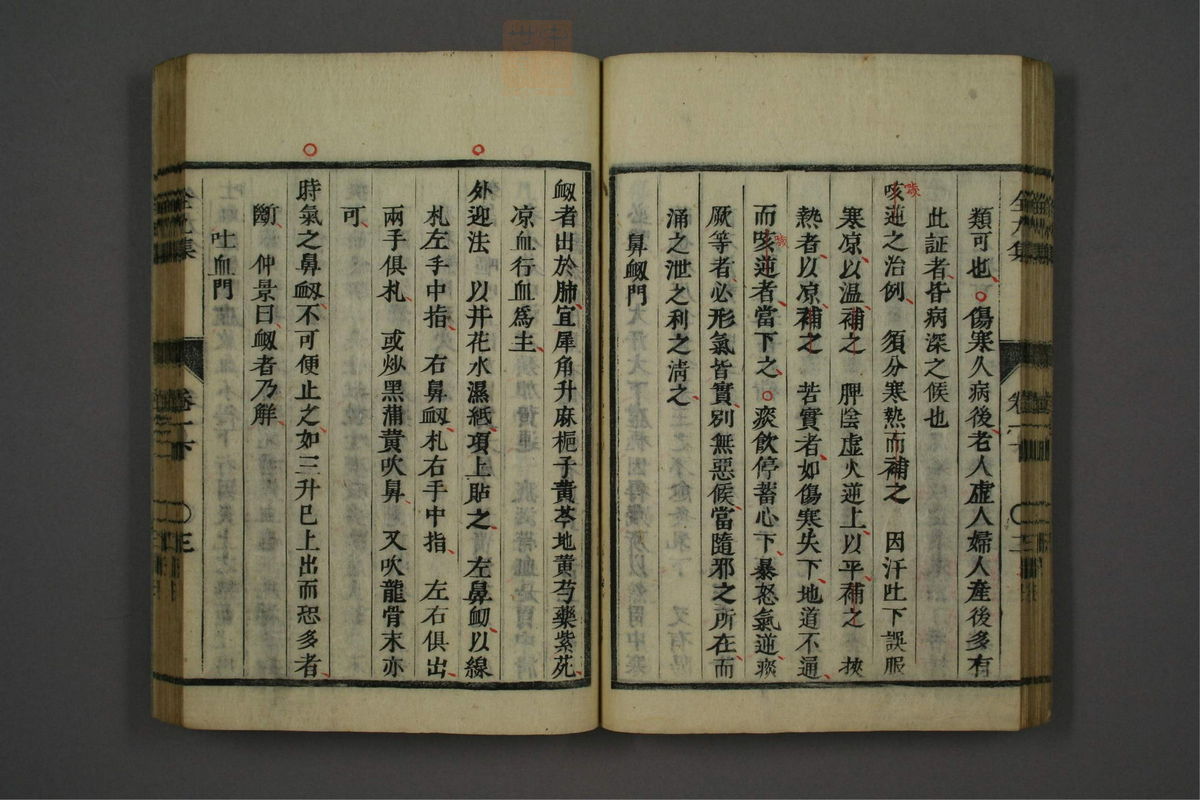 類可也傷寒久病後老人虛人婦人產後多有
此証者皆病深之候也
咳逆之治例　須分寒熱而補之　因汗吐下誤服
寒凉以温補之　脾陰虛火逆上以平補之　挾
熱者以凉補之　若實者如傷寒失下地道不通
而咳逆者當下之　痰飲停蓄心下暴怒氣逆痰
厥等者必形氣皆實別無惡候當隨邪之所在而
涌之泄之利之清之
鼻衂門
衂者出於肺宜犀角升麻梔子黃芩地黃芍藥紫苑
凉血行血爲主
外迎法　以井花水濕紙項上貼之　左鼻衂以線
札左手中指　右鼻衂札右手中指　左右俱出
兩手俱札　或炒黑蒲黃吹鼻　又吹龍骨末亦
可
時氣之鼻衂不可便止之如三升巳上出而恐多者
斷　仲景曰衂者乃解
吐血門